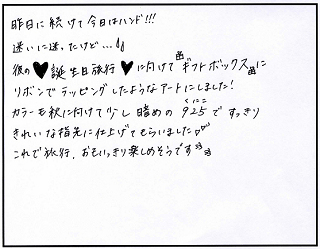 昨日に続けて今日はハンド!!!
迷いに迷ったけど…!!
彼の♥誕生日旅行♥に向けてギフトボックスに
リボンでラッピングしたようなアートにしました!
カラーも秋に向けて少し暗めの925で すっきり
きれいな指先に仕上げてもらいました♪
これで旅行、おもいっきり楽しめそうです